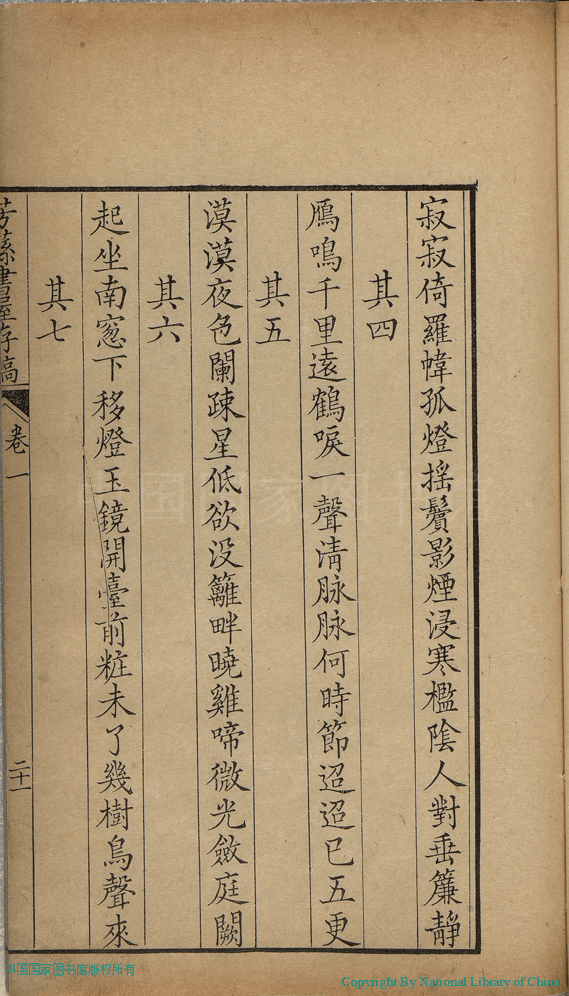 寂寂倚羅幃孤燈揺鬢影煙浸寒檻陰人對垂簾靜
其四
鴈鳴千里遠鶴唳一聲清脉脉何時節迢迢已五更
其五
漠漠夜色闌疎星低欲没籬畔曉雞啼微光斂庭闕
其六
起坐南窓下移燈玉鏡開臺前粧未了幾樹鳥聲來
其七
書屋存稿
卷一
二十一
中国国家图书馆版权所有
Copyright By National Library of China